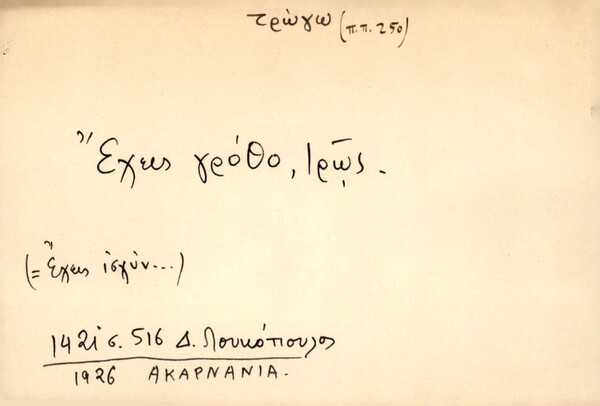 τρώγω (π.π. 250)
Ἔχεις γρόθο, τρῷς.
(= Ἔχεις ἰσχύν...)
1421 σ. 516 Δ. Λουκόπουλος
1926 ΑΚΑΡΝΑΝΙΑ.